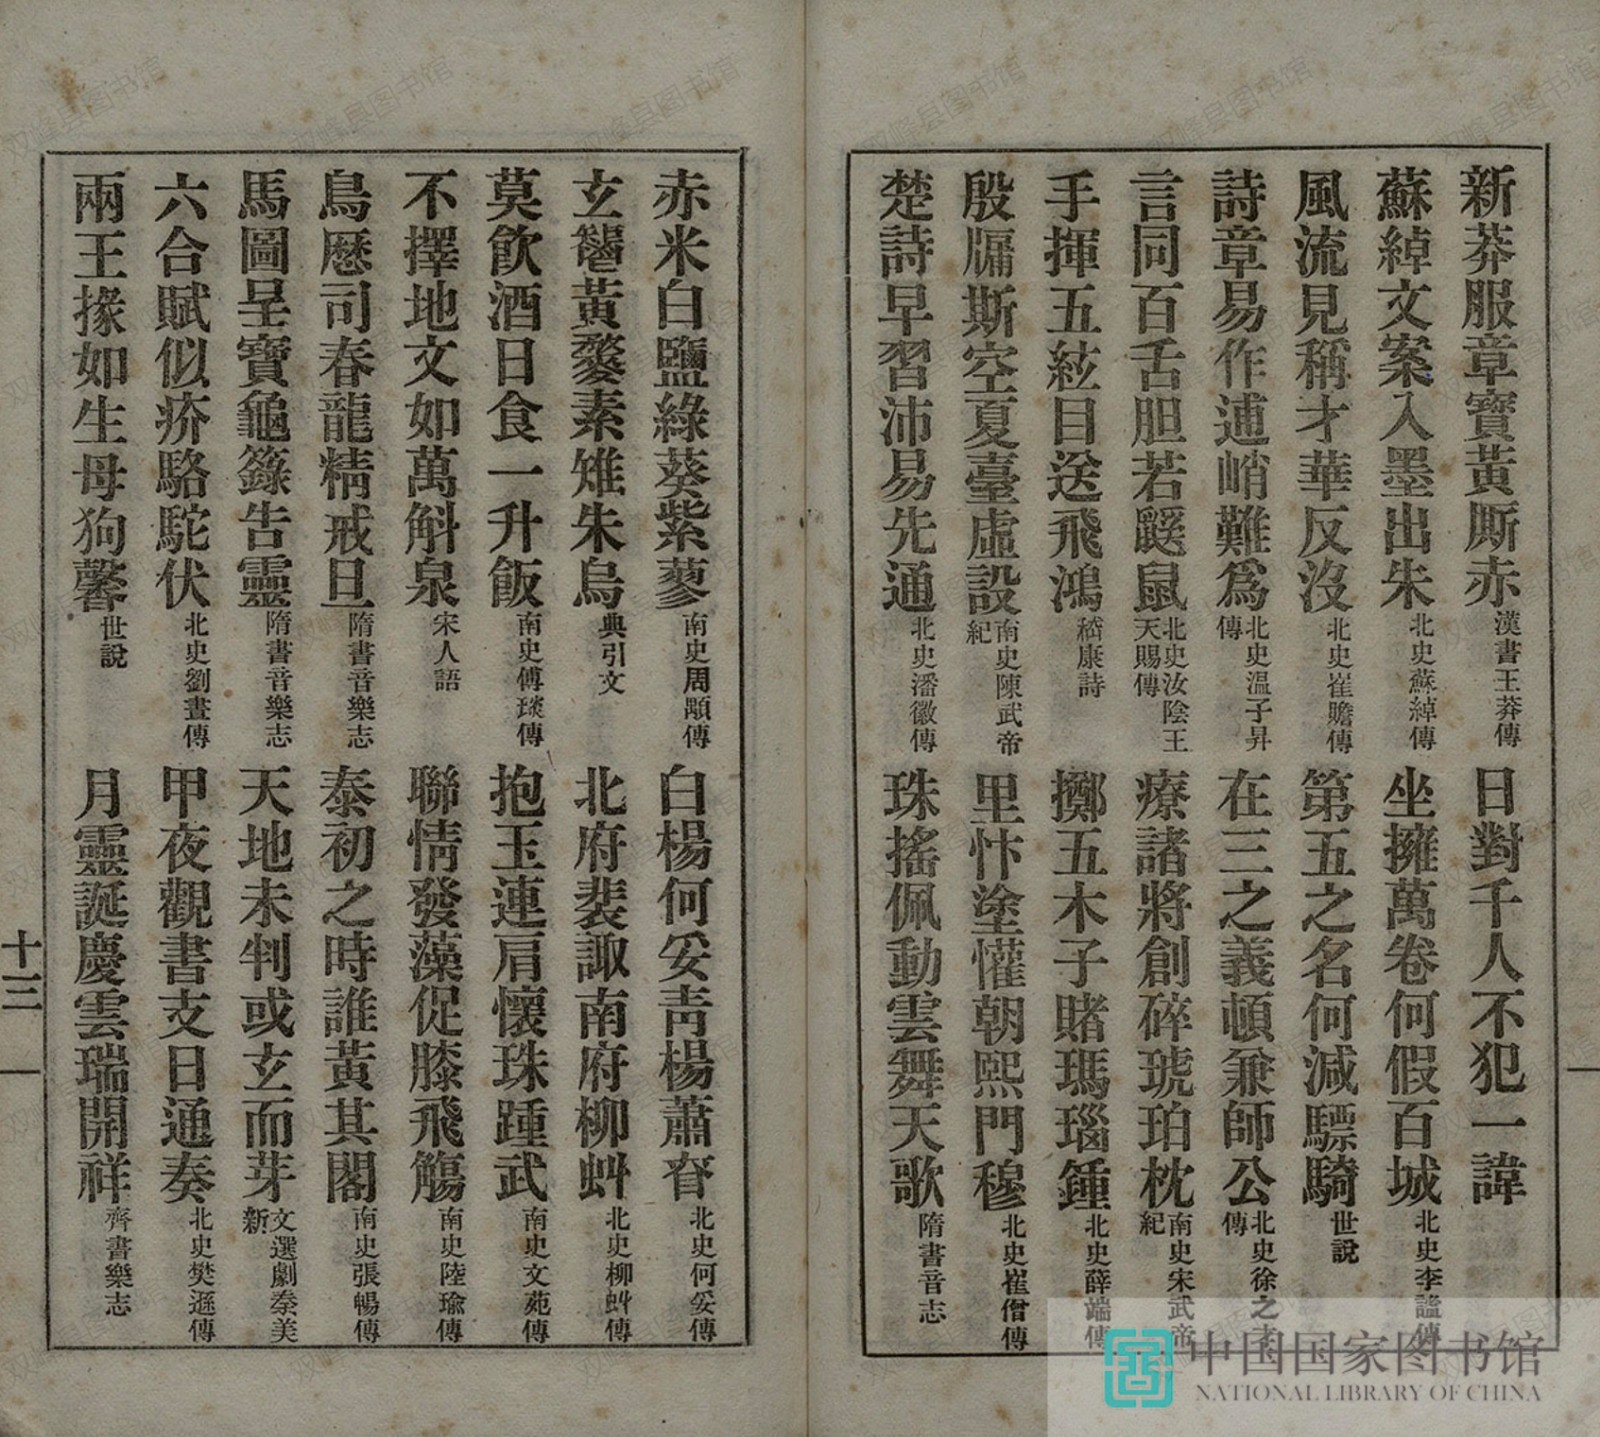 新莽服章寶黃厮赤漢書王莽傳　日對千人不犯一諱
蘇綽文案入墨出朱北史蘇綽傳　坐擁萬卷何假百城北史李謐傳
風流見稱才華反沒北史崔贍傳　第五之名何減驃騎世說
詩章易作逋峭難爲北史温子昇傳　在三之義頓兼師公北史徐之才傳
言同百舌胆若鼷鼠北史汝陰王天賜傳　療諸將創碎琥珀枕南史宋武帝紀
手揮五絃目送飛鴻嵇康詩　擲五木子賭瑪瑙鍾北史薛端傳
殷牖斯空夏臺虛設南史陳武帝紀　里忭塗懽朝熙門穆北史崔僧傳
楚詩早習沛易先通北史潘徽傳　珠搖佩動雲舞天歌隋書音志
赤米白鹽綠葵紫蓼南史周顒傳　白楊何妥青楊蕭眘北史何妥傳
玄黃黎素雉朱烏典引文　北府裴諏南府柳虯北史柳虯傳
莫飲酒日食一升飯南史傅琰傳　抱玉連肩懷珠踵武南史文苑傳
不擇地文如萬斛泉宋人語　聯情發藻促膝飛觴南史陸瑜傳
鳥厯司春龍精戒旦隋書音樂志　泰初之時誰黃其閣南史張暢傳
馬圖呈寶龜籙告靈隋書音樂志　天地未判或玄而芽文選劇秦美新
六合賦似疥駱駝伏北史劉晝傳　甲夜觀書支日通奏北史樊遜傳
兩王掾如生母狗馨世說　月靈誕慶雲瑞開祥齊書樂志
十三
双峰县图书馆
中国国家图书馆
NATIONAL LIBRARY OF CHINA